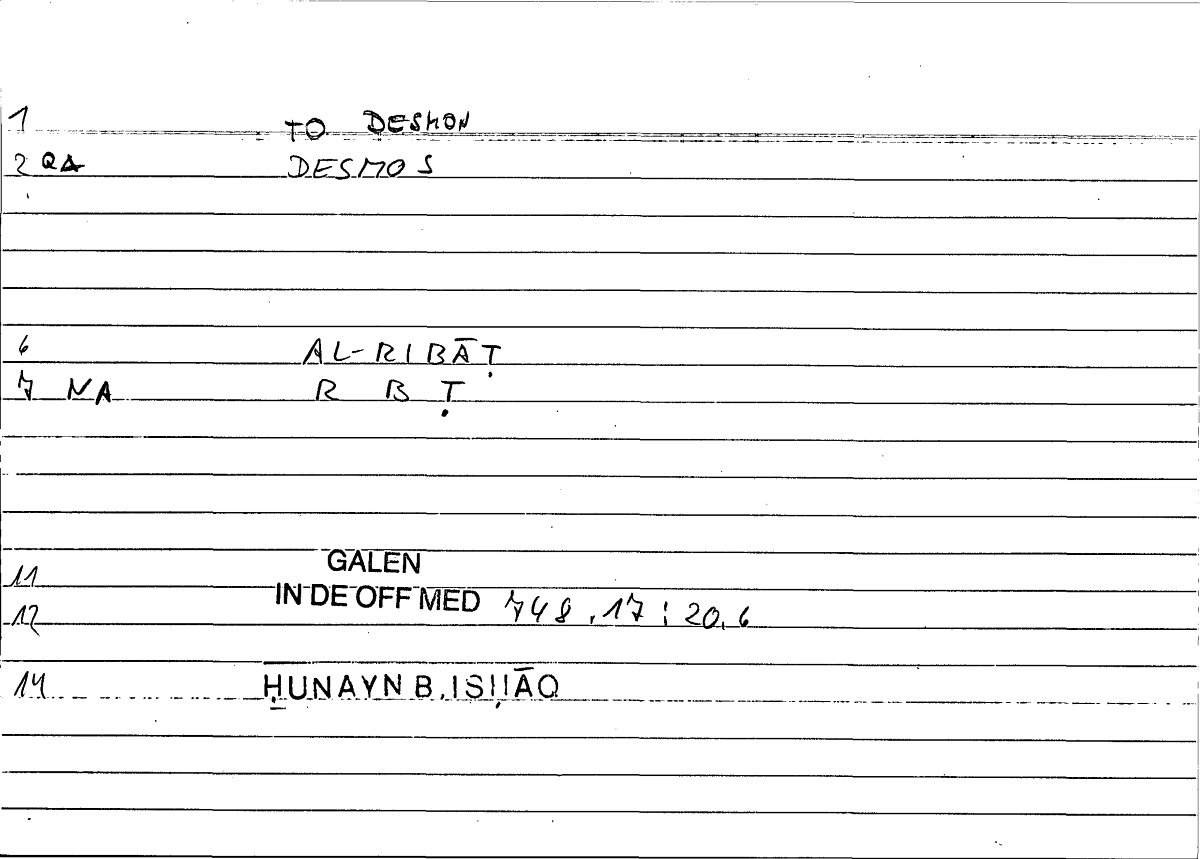 1 TO DESMON
2 QA DESMOS
6 AL-RIBĀṬ
7 NA R B Ṭ
11 GALEN
12 IN DE OFF MED 748,17 : 20,6
14 ḤUNAYN B. ISḤĀQ